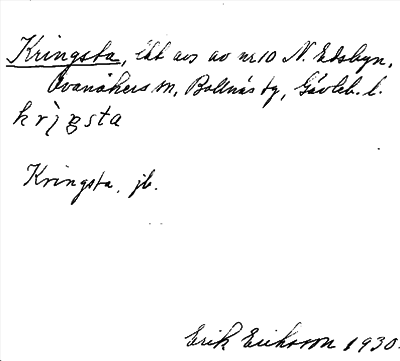 Kringsta, ikt avs av nr 10 N. Edsbyn,
Ovanåkers sn, Bollnäs tg, Gävleb. l.
krìŋsta
Kringsta, jb.
Erik Eriksson 1930.